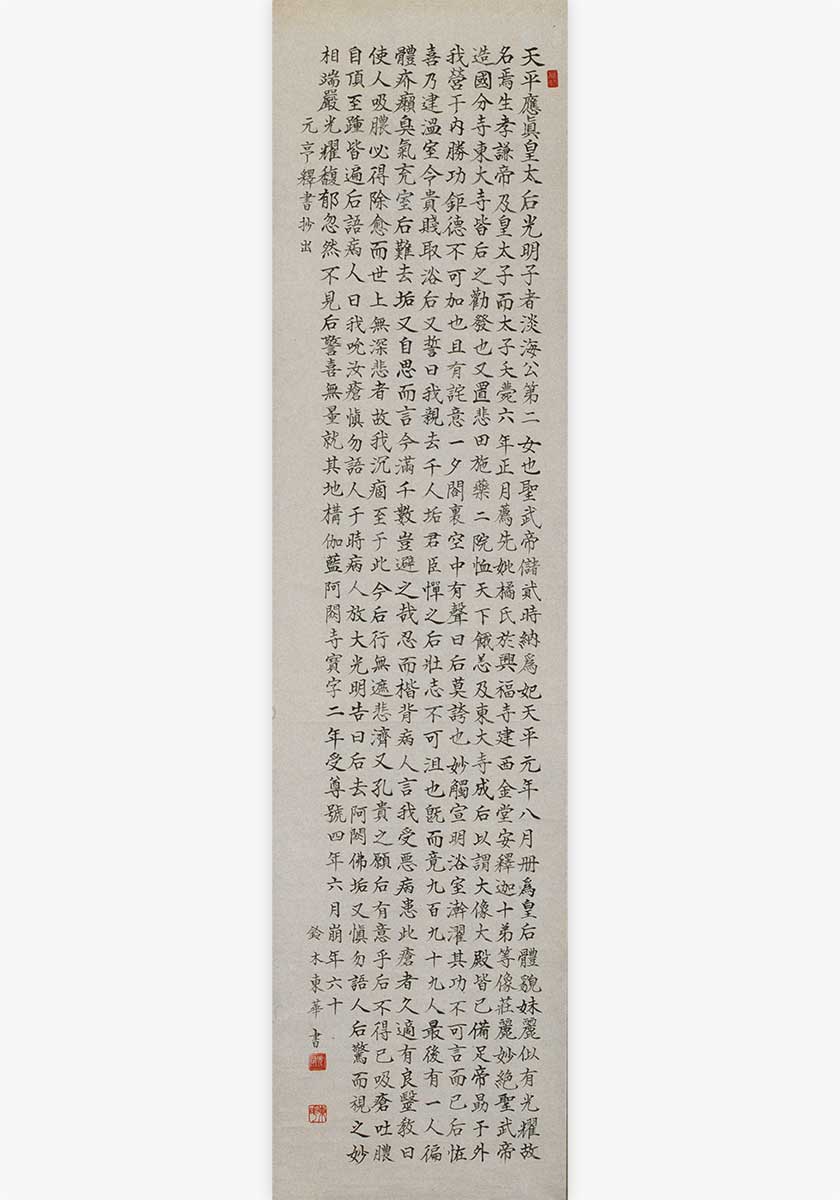 天平應眞皇太后光明子者淡海公第二女也聖武帝儲貳時納爲妃天平元年八月册爲皇后體貌姝麗似有光耀故
名焉生孝謙帝及皇太子而太子夭薨六年正月薦先妣橘氏於興福寺建西金堂安釋迦十弟等像莊麗妙絕聖武帝
造國分寺東大寺皆后之勸發也又置悲田施藥二院恤天下餓恙及東大寺成后以謂大像大殿皆已備足帝勗于外
我營于内勝功鉅德不可加也且有詫意一夕閤裏空中有聲曰后莫誇也妙觸宣明浴室澣濯其功不可言而已后恠
喜乃建溫室令貴賤取浴后又誓曰我親去千人垢君臣憚之后壯志不可沮也既而竟九百九十九人最後有一人徧
體疥癩臭氣充室后難去垢又自思而言今滿千數豈避之哉忍而楷背病人言我受惡病患此瘡者久適有良毉敎曰
使人吸膿必得除愈而世上無深悲者故我沉痼至于此今后行無遮悲濟又孔貴之願后有意乎后不得已吸瘡吐膿
自頂至踵皆遍后語病人曰我吮汝瘡愼勿語人于時病人放大光明告曰后去阿閦佛垢又愼勿語人后驚而視之妙
相端嚴光耀馥郁忽然不見后驚喜無量就其地構伽藍阿閦寺寶字二年受尊號四年六月崩年六十
元亨釋書抄出
鈴木東華書